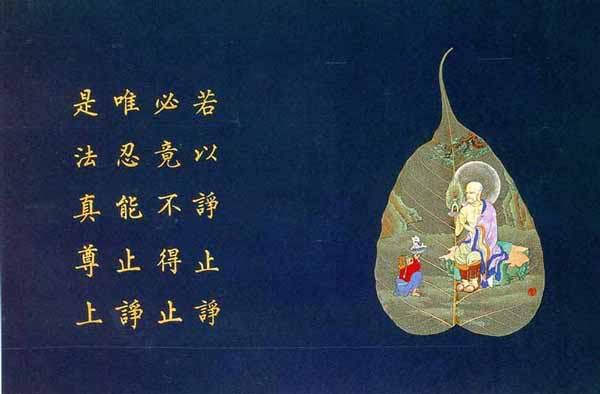 若以諍止諍
必竟不得止
唯忍能止諍
是法真尊上